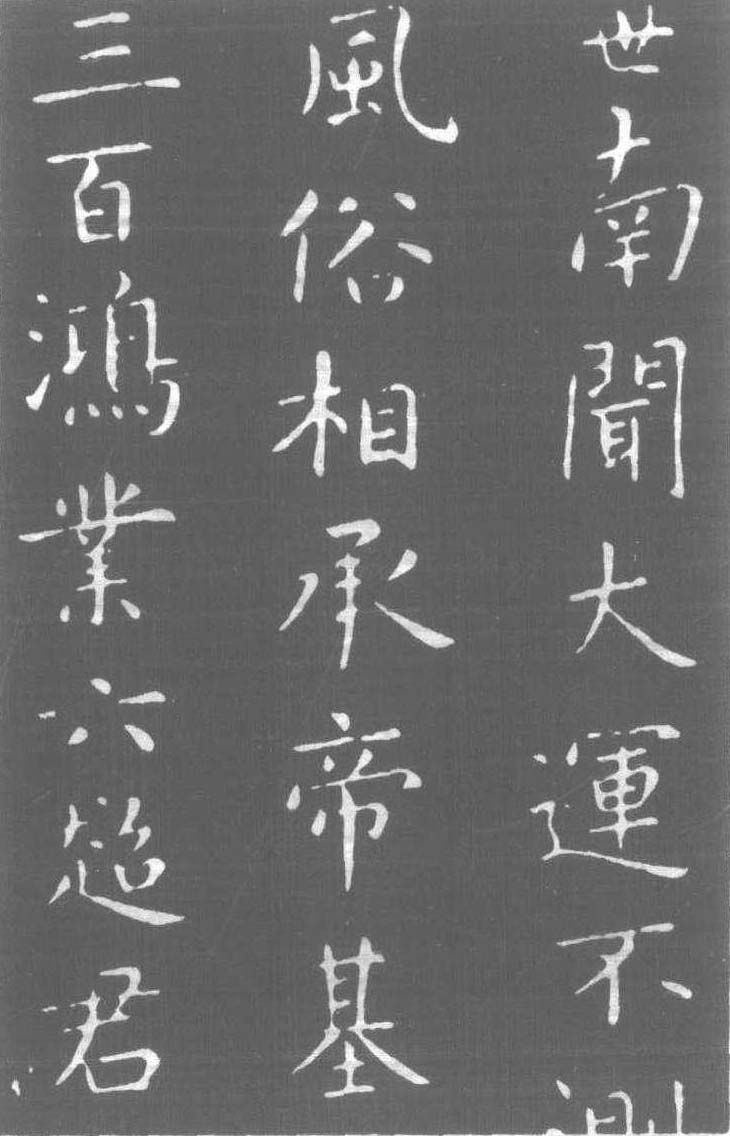 世南聞大運不測
風俗相承帝基
三百鴻業六超君